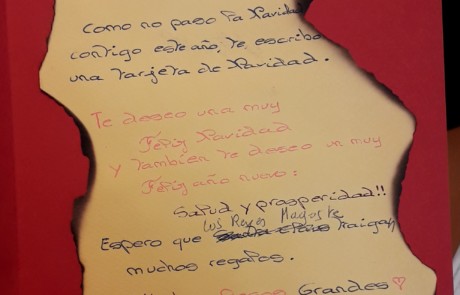 Como no paso la Navidad
contigo este año, te escribo
una tarjeta de Navidad.
Te deseo una muy
Feliz Navidad
y también te deseo un muy
Feliz año nuevo:
Salud y prosperidad!!
Los Reyes Magos te
Espero que traigan
muchos regalos.
Besos Grandes ♡